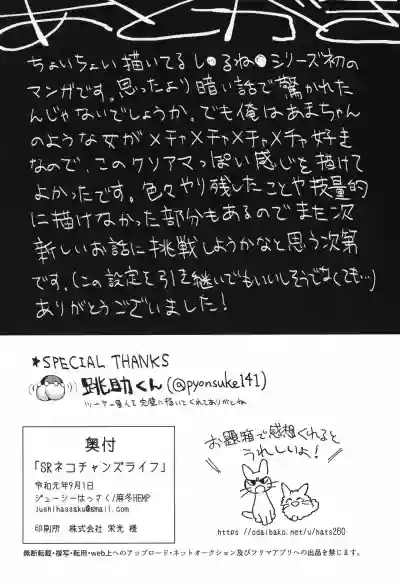 あとがき
ちょいちょい描いてるし●るね●シリーズ初の
マンガです。思ったより暗い話で驚かれた
んじゃないでしょうか。でも俺はあまちゃん
のような女がメチャメチャメチャメチャ好き
なので、このクリアマっぽい感じを描けて
よかったです。色々やり残したことや技量的
に描けなかった部分もあるのでまた次
新しいお話に挑戦しようかなと思う次第
です。(この設定を引き継いでもいいしそうでなくても…)
ありがとうございました!
*SPECIAL THANKS
跳助くん(@pyonsuke141)
奥付
「SRネコチャンズライフ」
令和元年9月1日
ジューシーはっさく/麻冬HEMP
jushihassaku@gmail.com
印刷所 株式会社 栄光 様
お題箱で感想くれると
うれしいよ!
https://odaibako.net/u/hats260
無断転載・複写・転用・web上へのアップロード・ネットオークション及びフリマアプリへの出品を禁じます。